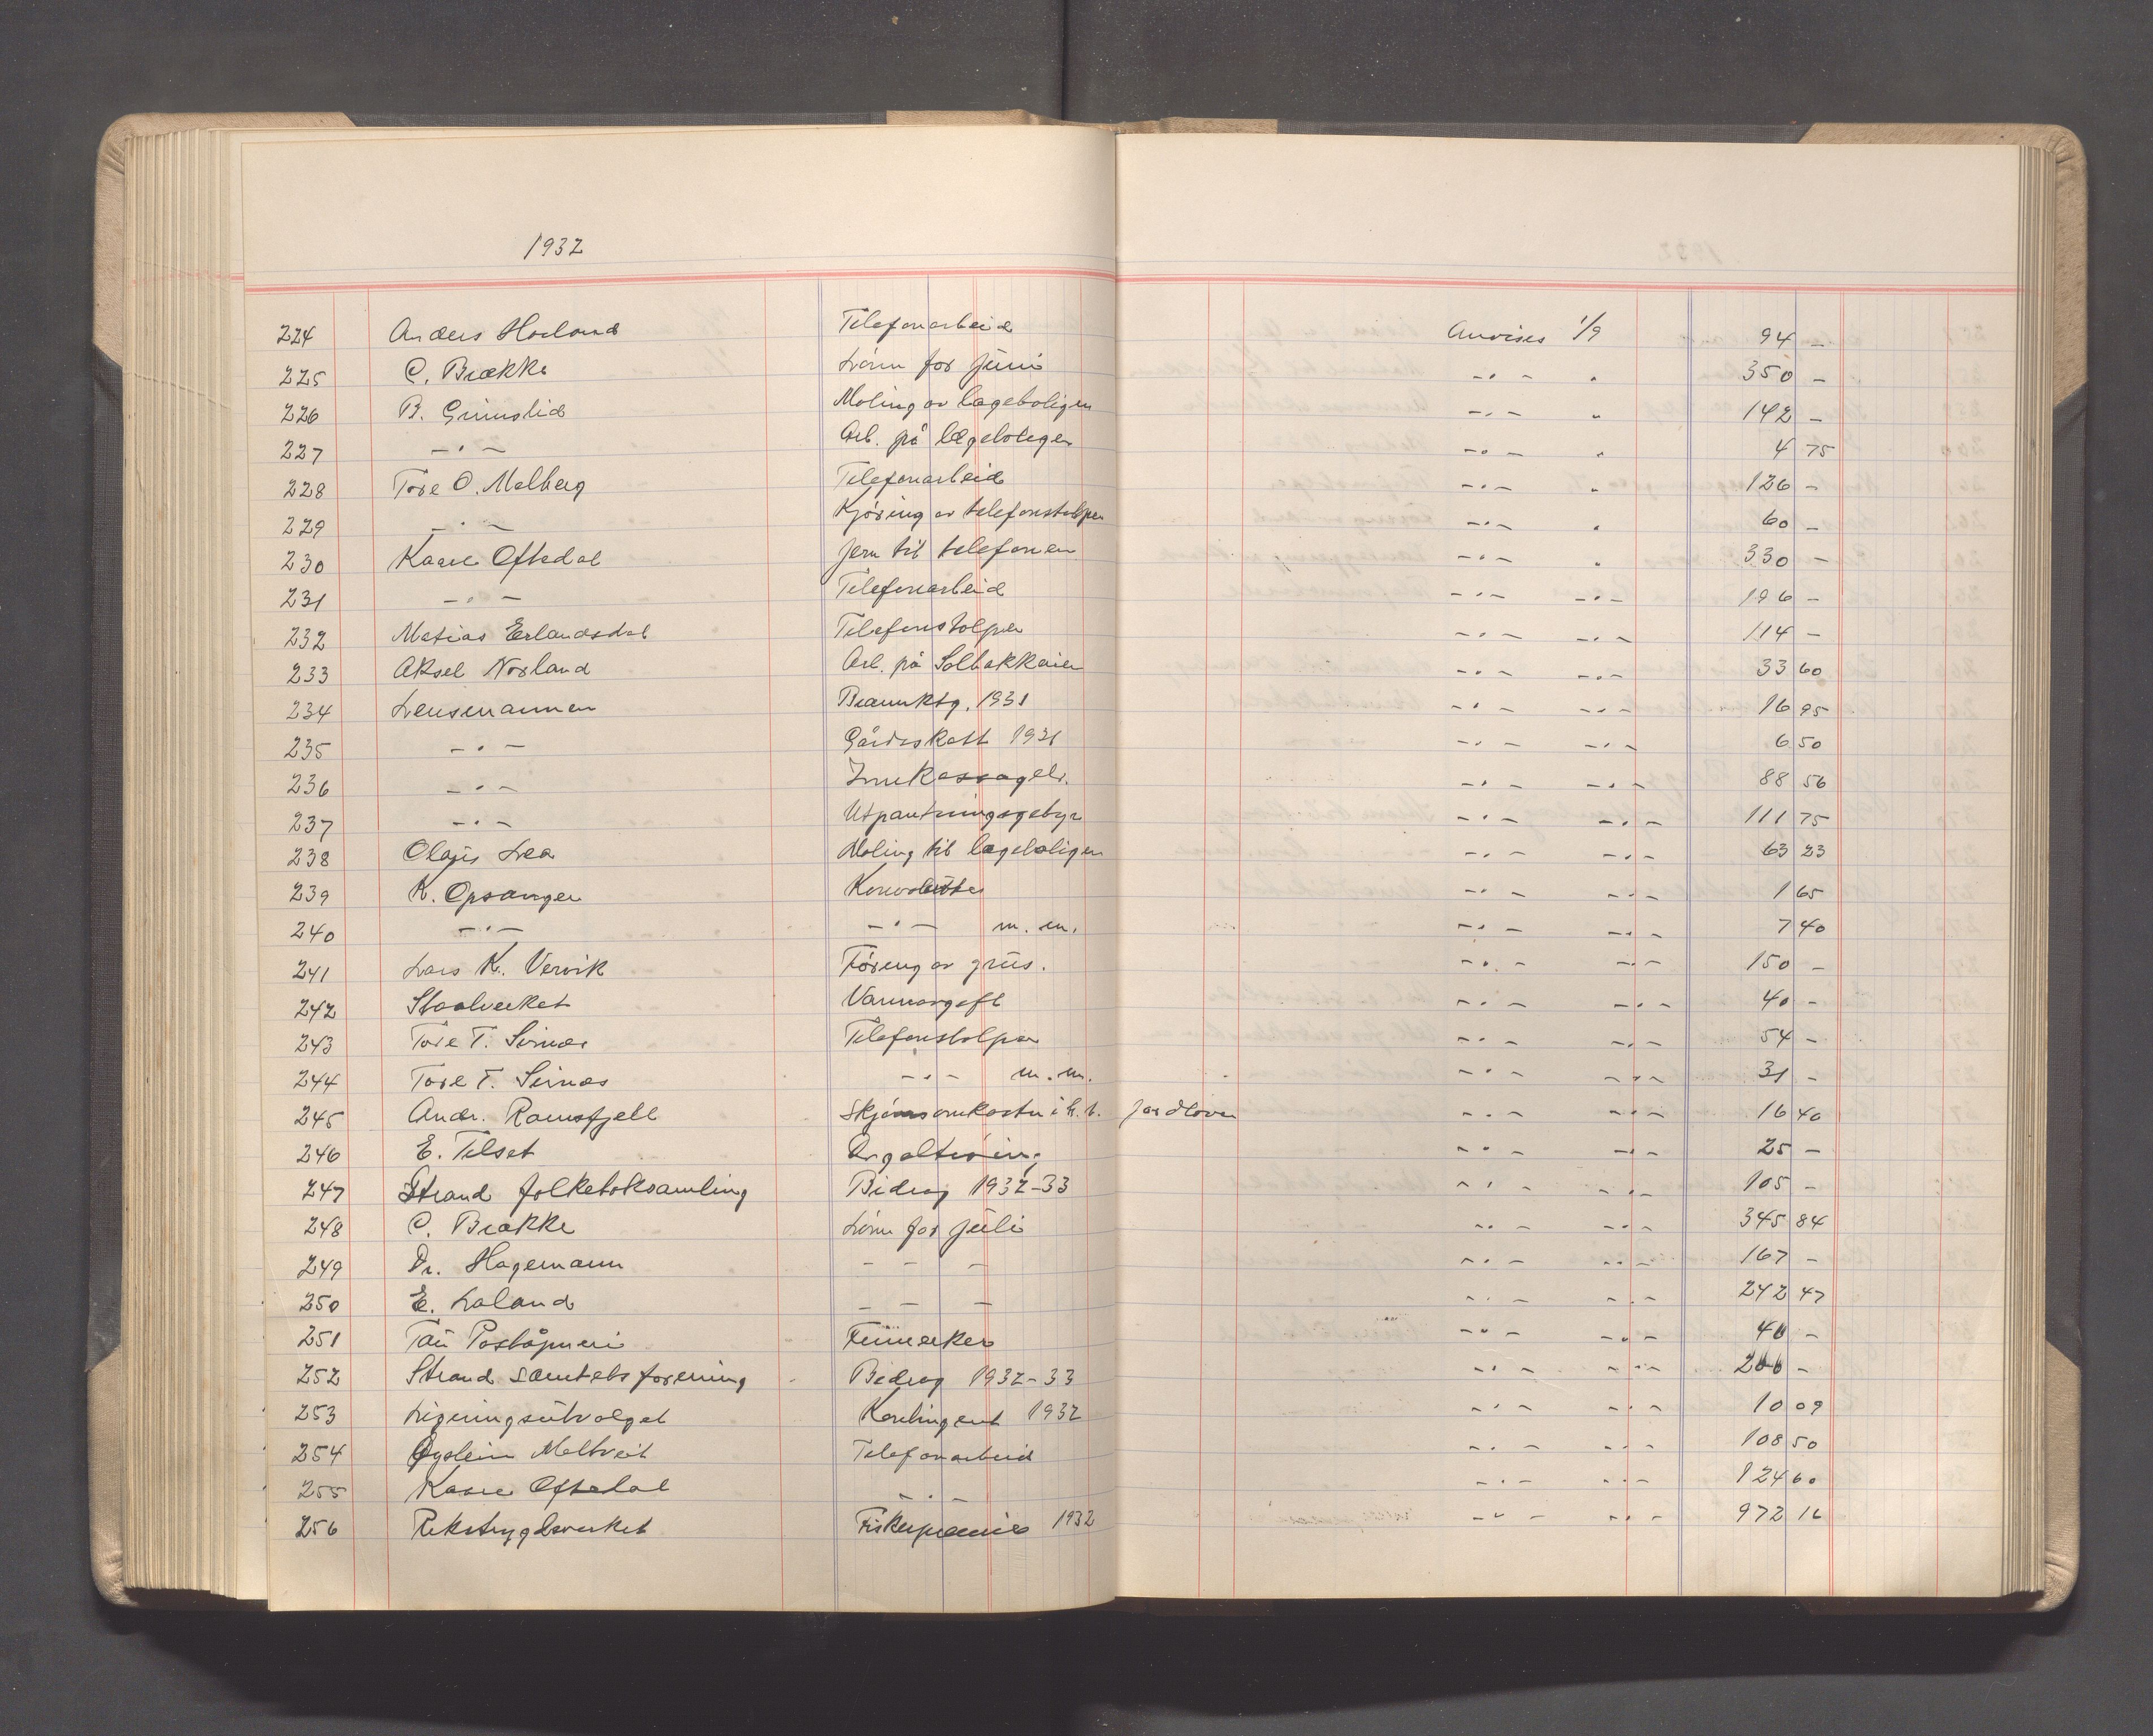 1932
224 Anders Horland Telefonarbeid Anvises 1/9 94 –
225 C. Brække Lønn for juni –"– " 350 –
226 B. Grimslid Maling av lægeboligen –"– " 142 –
227 –"– Arb. på lægeboligen –"– " 4 75
228 Tore O. Malberg Telefonarbeid –"– " 126 –
229 –"– Kjøring av telefonstolper –"– " 60 –
230 Kaare Oftedal Jern til telefonen –"– " 330 –
231 –"– Telefonarbeid –"– –"– 196 –
232 Matias Erlandsdal Telefonstolper –"– –"– 114 –
233 Aksel Norland Arb. på Solbakkaien –"– –"– 33 60
234 Lensmannen Brannktg. 1931 –"– –"– 16 95
235 –"– Gårdsskatt 1931 –"– –"– 6 50
236 –"– Innkassogeb. –"– –"– 88 56
237 –"– Utpantningsgebyr –"– –"– 111 75
238 Olajs Lea Maling til lægeboligen –"– –"– 63 23
239 K. Opsanger Konvolutter –"– –"– 1 65
240 –"– –"– m. m. –"– –"– 7 40
241 Lars K. Vervik Føring av grus. –"– –"– 150 –
242 Staalverket Vannavgift –"– –"– 40 –
243 Tore T. Seines Telefonstolper –"– –"– 54 –
244 Tore T. Seines –"– m. m. –"– –"– 31 –
245 Andr. Ramsfjell Skjønnsomkostn i h. t. jordloven –"– –"– 16 40
246 E. Tilset –"– –"– 25 –
247 Strand folkeboksamling Bidrag 1932-33 –"– –"– 105 –
248 C. Brække Lønn for juli –"– –"– 345 84
249 Dr. Hagemann – – – –"– –"– 167 –
250 E. Laland – – – –"– –"– 242 47
251 Tau Poståpneri Frimerker –"– –"– 40 –
252 Strand samtalsforening Bidrag 1932-33 –"– –"– 200 –
253 Ligningsutvalget Kontingent 1932 –"– –"– 10 09
254 Øystein Maltveit Telefonarbeid –"– –"– 108 50
255 Kaare Oftedal –"– –"– –"– 124 60
256 Rikstrygdeverket Fiskerpremie 1932 –"– –"– 972 16